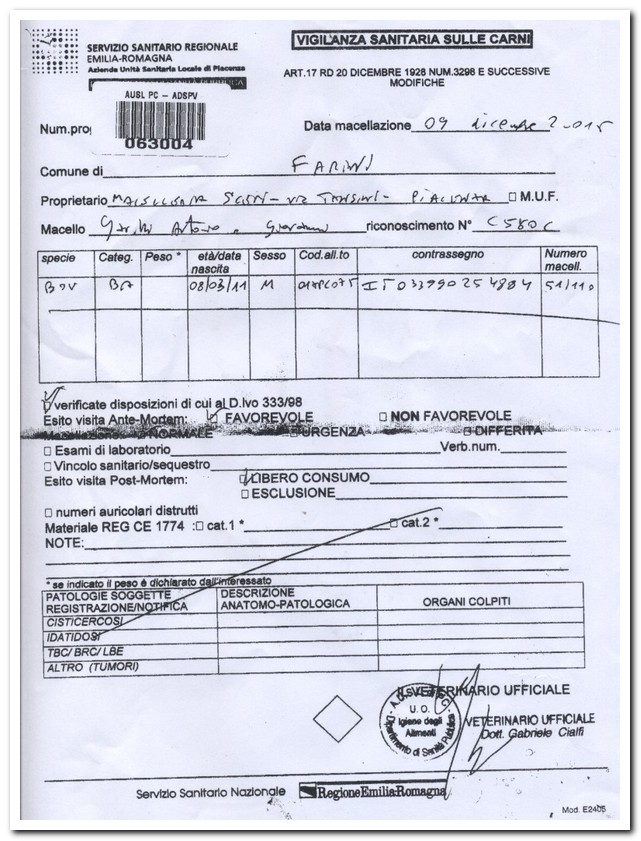 SERVIZIO SANITARIO REGIONALE
EMILIA-ROMAGNA
Azienda Unità Sanitaria Locale di Piacenza
VIGILANZA SANITARIA SULLE CARNI
ART.17 RD 20 DICEMBRE 1928 NUM.3298 E SUCCESSIVE
MODIFICHE
AUSL PC - ADSPV
063004
Num.pro
Data macellazione 09 dicembre 2015
Comune di FARINI
Proprietario PIACENZA □ M.U.F.
Macello riconoscimento N° C580C
specie Categ. Peso * età/data nascita Sesso Cod.all.to contrassegno Numero macell.
BOV BA 08/03/11 M 017PC075 IT033990254804 51/110
verificate disposizioni di cui al D.lvo 333/98
Esito visita Ante-Mortem: FAVOREVOLE □ NON FAVOREVOLE
Macellazione: NORMALE □ URGENZA □ DIFFERITA
□ Esami di laboratorio Verb.num.
□ Vincolo sanitario/sequestro
Esito visita Post-Mortem: LIBERO CONSUMO
□ ESCLUSIONE
□ numeri auricolari distrutti
Materiale REG CE 1774 :□ cat.1 * □ cat.2 *
NOTE:
* se indicato il peso è dichiarato dall'interessato
PATOLOGIE SOGGETTE REGISTRAZIONE/NOTIFICA DESCRIZIONE ANATOMO-PATOLOGICA ORGANI COLPITI
CISTICERCOSI
IDATIDOSI
TBC/ BRC/ LBE
ALTRO (TUMORI)
IL VETERINARIO UFFICIALE
U.O.
Igiene degli
Alimenti
Dipartimento di Sanità Pubblica
VETERINARIO UFFICIALE
Dott. Gabriele Cialfi
Servizio Sanitario Nazionale RegioneEmilia-Romagna
Mod. E2405